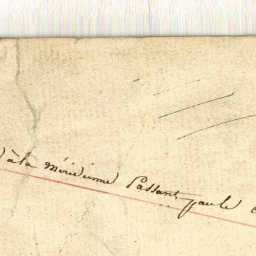 à la méridienne Passant par le